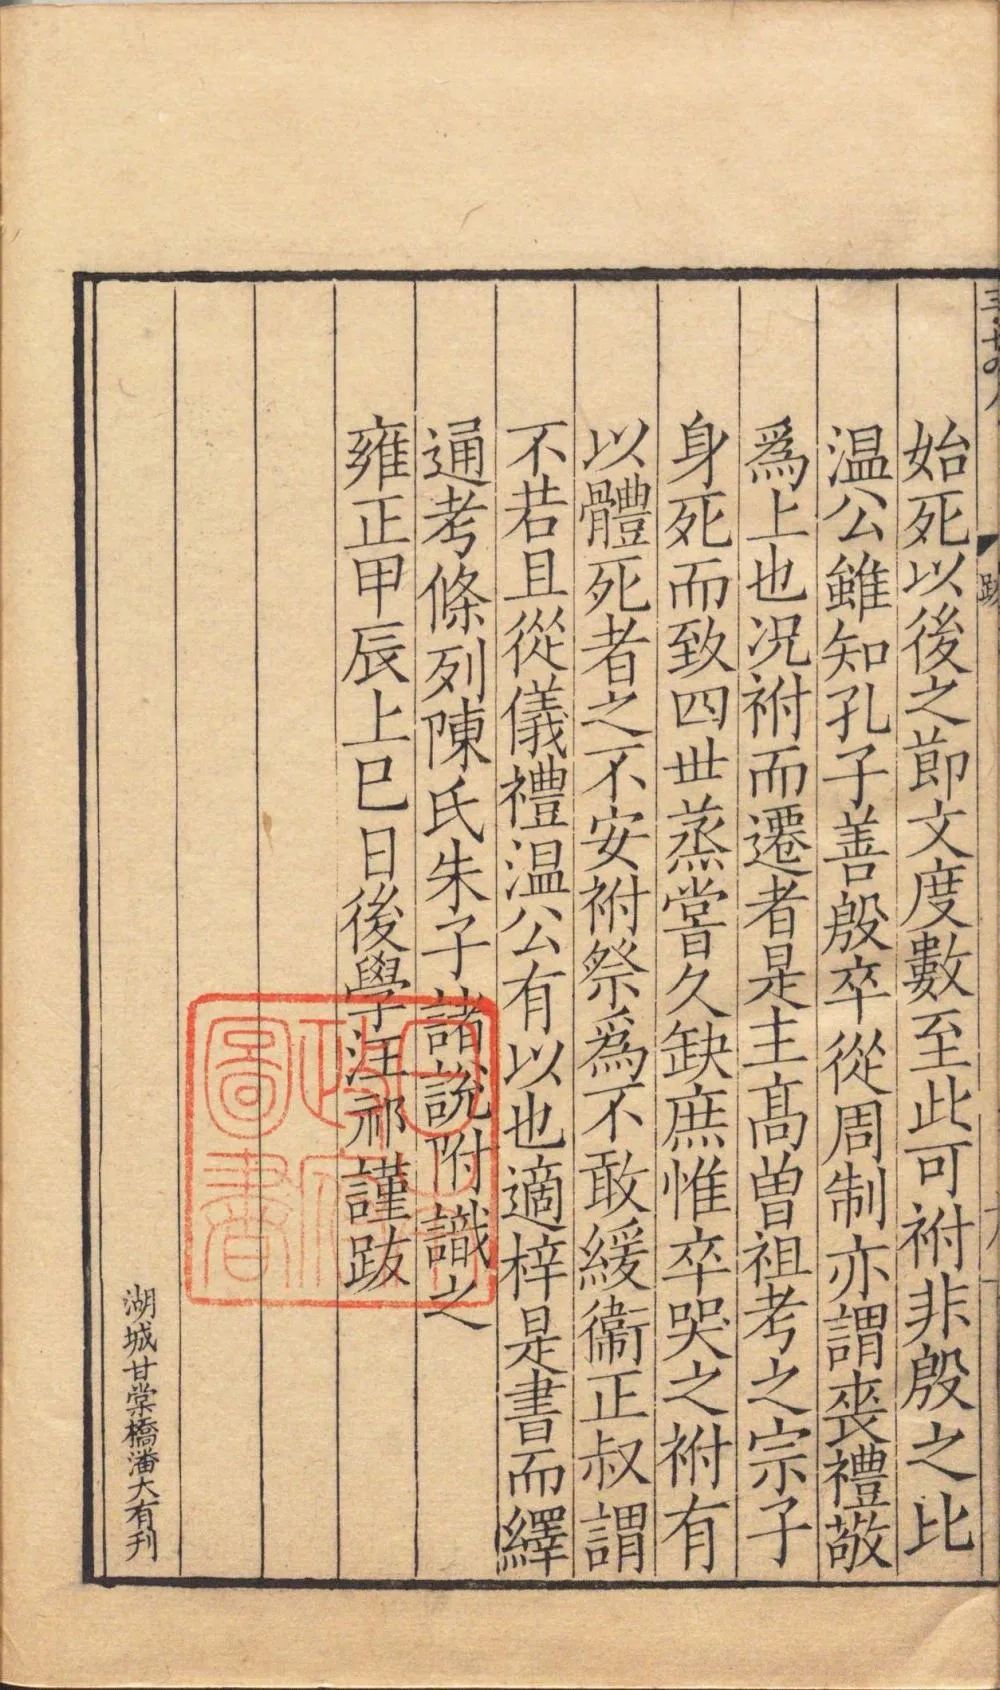 始死以後之節文度數至此可祔非殷之比
温公雖知孔子善殷卒從周制亦謂喪禮敬
爲上也况祔而遷者是主高曾祖考之宗子
身死而致四世蒸嘗久缺庶惟卒哭之祔有
以體死者之不安祔祭爲不敢緩衞正叔謂
不若且從儀禮温公有以也適梓是書而繹
通考條列陳氏朱子諸說附識之
雍正甲辰上巳日後學汪祁謹跋
圖書
湖城甘棠橋潘大有刊